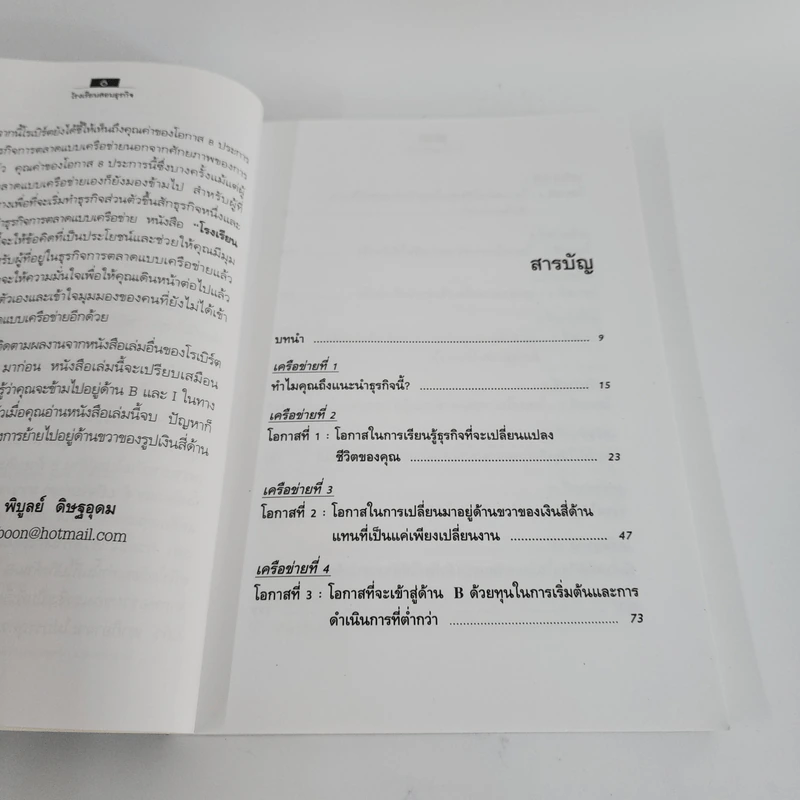 โรงเรียนสอนธุรกิจ
จากนี้โรเบิร์ตยังได้ชี้ให้เห็นถึงคุณค่าของโอกาส 8 ประการ
ธุรกิจการตลาดแบบเครือข่ายนอกจากศักยภาพของการ
คุณค่าของโอกาส 8 ประการนี้ซึ่งบางครั้งแม้แต่ผู้
ตลาดแบบเครือข่ายเองก็ยังมองข้ามไป สำหรับผู้ที่
ทางเพื่อที่จะเริ่มทำธุรกิจส่วนตัวขึ้นสักธุรกิจหนึ่งและ
ธุรกิจการตลาดแบบเครือข่าย หนังสือ "โรงเรียน
จะให้ข้อคิดที่เป็นประโยชน์และช่วยให้คุณมีมุม
รับผู้ที่อยู่ในธุรกิจการตลาดแบบเครือข่ายแล้ว
จะให้ความมั่นใจเพื่อให้คุณเดินหน้าต่อไปแล้ว
ตัวเองและเข้าใจมุมมองของคนที่ยังไม่ได้เข้า
แบบเครือข่ายอีกด้วย
ติดตามผลงานจากหนังสือเล่มอื่นของโรเบิร์ต
มาก่อน หนังสือเล่มนี้จะเปรียบเสมือน
รู้ว่าคุณจะข้ามไปอยู่ด้าน B และ I ในทาง
เมื่อคุณอ่านหนังสือเล่มนี้จบ ปัญหาก็
การย้ายไปอยู่ด้านขวาของรูปเงินสี่ด้าน
พิบูลย์ ดิษฐอุดม
poon@hotmail.com
สารบัญ
บทนำ ........ 9
เครือข่ายที่ 1
ทำไมคุณถึงแนะนำธุรกิจนี้? ........ 15
เครือข่ายที่ 2
โอกาสที่ 1 : โอกาสในการเรียนรู้ธุรกิจที่จะเปลี่ยนแปลง
ชีวิตของคุณ ........ 23
เครือข่ายที่ 3
โอกาสที่ 2 : โอกาสในการเปลี่ยนมาอยู่ด้านขวาของเงินสี่ด้าน
แทนที่เป็นแค่เพียงเปลี่ยนงาน ........ 47
เครือข่ายที่ 4
โอกาสที่ 3 : โอกาสที่จะเข้าสู่ด้าน B ด้วยทุนในการเริ่มต้นและการ
ดำเนินการที่ต่ำกว่า ........ 73